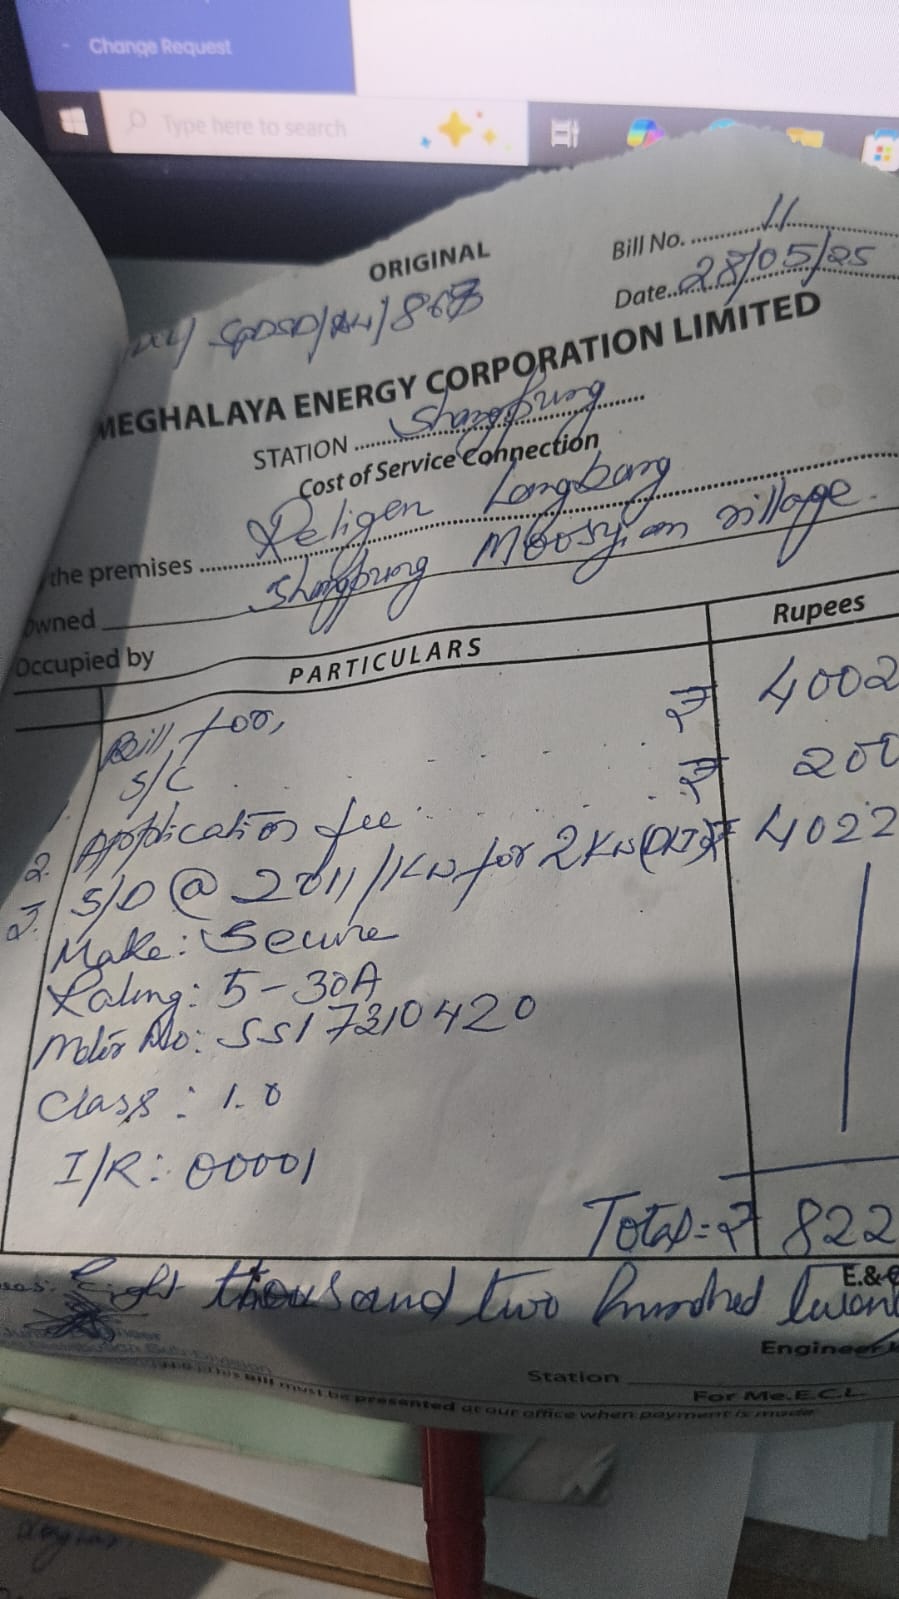 - Change Request
Type here to search
ORIGINAL
Bill No. 11
Date 28/05/25
MEGHALAYA ENERGY CORPORATION LIMITED
STATION Shangpung
Cost of Service Connection
the premises Religen Langbang
Owned Shangpung Moosyiem village.
Occupied by
PARTICULARS Rupees
Bill for,
S/C ₹ 4002
2. Application fee ₹ 200
3. S/D @ 2011/KW for 2KW (DLT) ₹ 4022
Make: Secure
Rating: 5-30A
Meter No: SS17310420
Class: 1.0
I/R: 00001
Total = ₹ 822
Eight thousand two hundred twen
E.&
Engineer
Station
For Me.E.C.L.
Bill must be presented at our office when payment is made